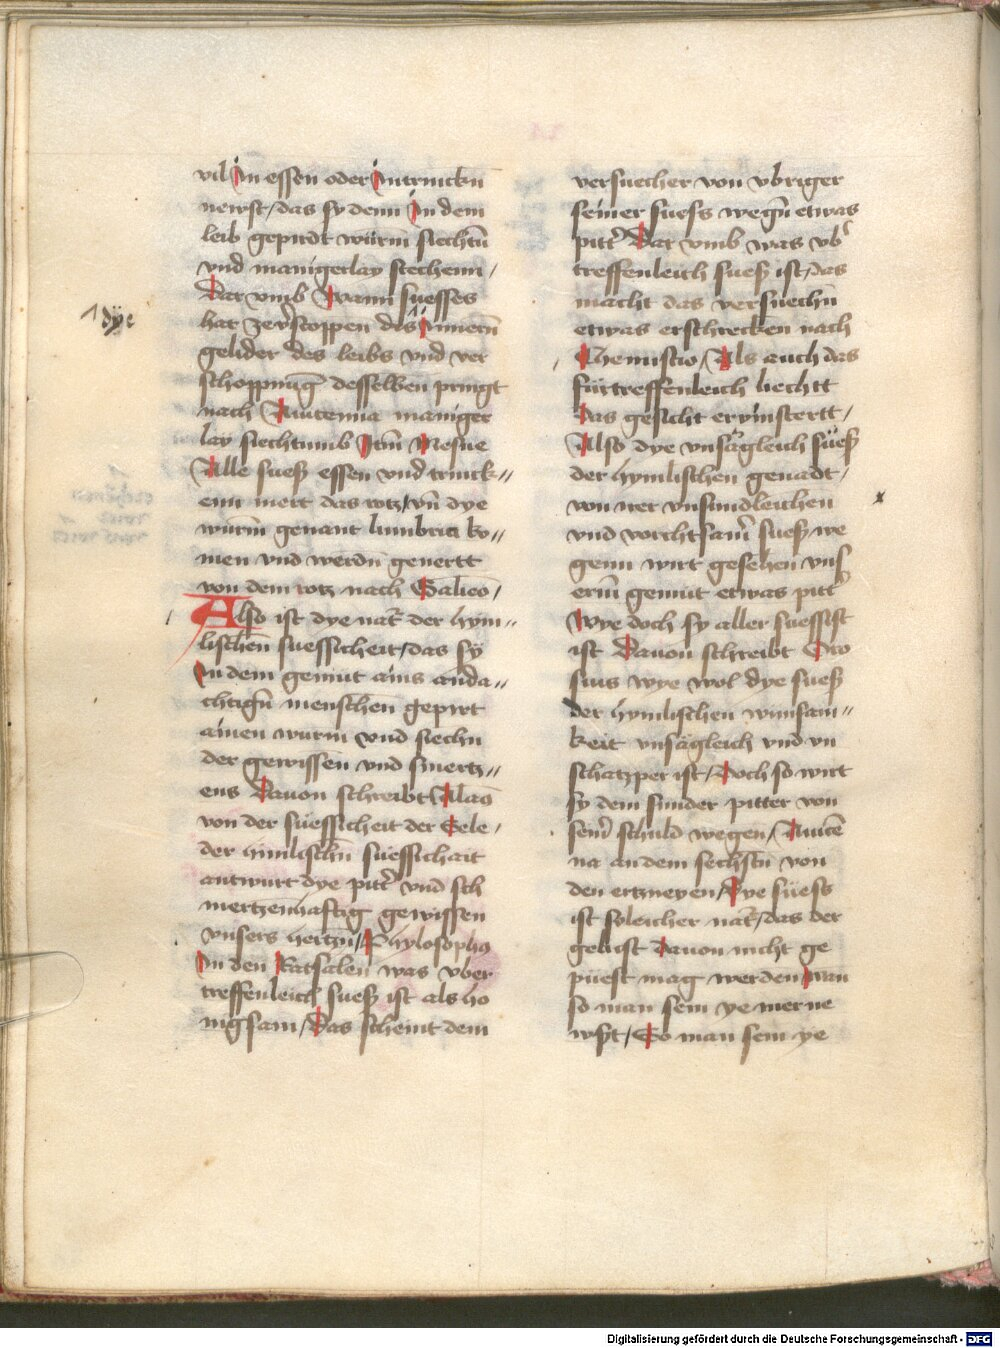 vil In essen oder Intrincken
newst / das sy denn In dem
leib gepirdt würm siechtū
vnd manigerlay stechenn /
Dar vmb Wann suesses
hat zerstoppen die Innern
gelider des leibs vnd ver
schoppnūg desselben pringt
nach Auicenna maniger
lay siechtumb Itm̄ Mesue
Alle sueß essen vnd trinck〃
enn mert das rotz / vn̄ dye
würm genant lumbrici ko〃
men vnd werdn̄ genertt
von dem rotz nach Galieō /
Also ist dye nat̄ der hym〃
lischen suessicheit / das sy
In dem gemüt ains anda〃
chtign̄ menschen gepirt
ainen wurm vnd siechn
der gewissen vnd smertz〃
ens Dauon schreibt Alan̄
von der süessicheit der Sele /
der himlischn̄ süessichait
antwurt dye pitt̄ vnd sch
mertzenhaftig gewissen
vnsers hertzn̄ / Phylosophꝰ
In den Ratsalen was vber
treffenleich sueß ist als ho
nigsam / Das scheint dem
versuecher von vbriger
seiner suess wegn̄ etwas
pitt̄ Dar vmb was vb̄
treffenleich sueß ist / das
macht das versuechn̄
etwas erschrecken nach
Themistio / Als auch das
fürtreffenleich liechtt
Das gesicht ervinstertt /
Also dye vnsägleich süeß
der hymlischen genadt /
von ner vnsundleichen
vnd vorchtsam̄ sueß we
genn wirt gesehen vns
erm̄ gemüt etwas pitt̄
Wye doch sy aller suessist
ist Dauon schreibt Oro
sius wye wol dye sueß
der hymlischen wunsam〃
keit vnsägleich vnd vn
schatzper ist / Doch so wirt
sy dem sunder pitter von
sein̄ schuld wegen / Auicē
na an dem sechstn̄ von
den ertzneyen / Dye süess
ist soleicher nat̄ / das der
gelust Dauon nicht ge
püest mag werden wan
so man sein ye mer ne
wst / So man sein ye
dye